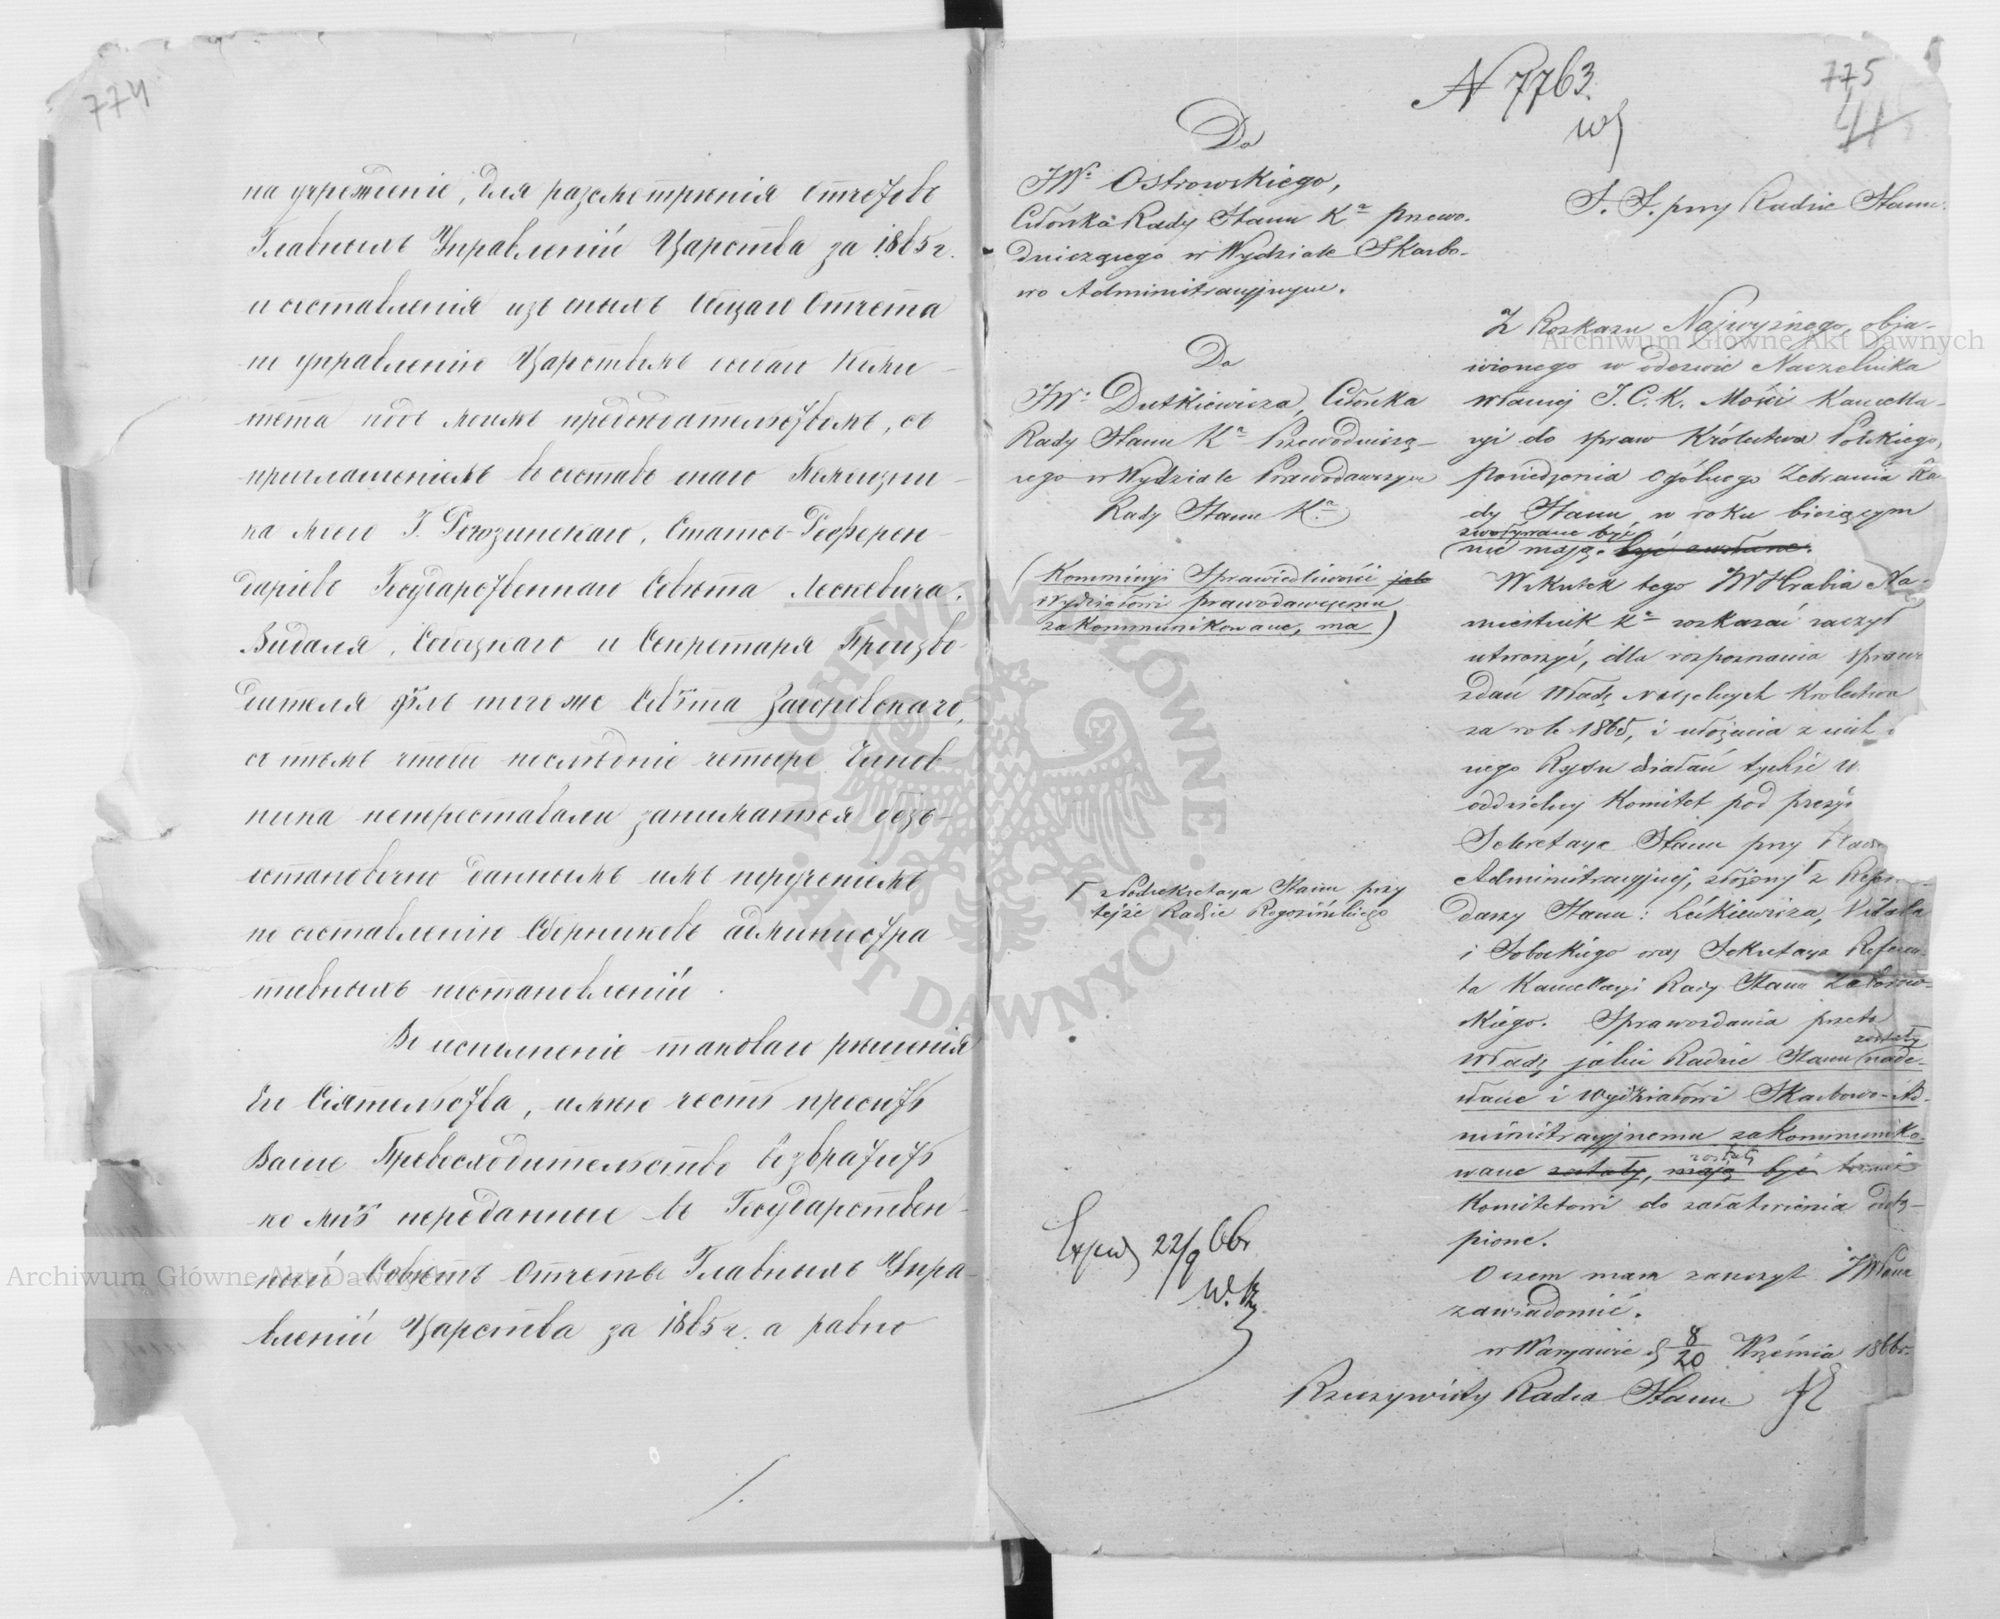 774
на учрежденіе, для разсмотрѣнія Отчетовъ
Главныхъ Управленій Царства за 1865 г.
и составленія изъ оныхъ Общаго Отчета
по управленію Царствомъ особаго Коми-
тета подъ моимъ предсѣдательствомъ, съ
приглашеніемъ въ составъ онаго Помощни-
ка моего Г. Рогозинскаго, Статсъ-Референ-
даріевъ Государственнаго Совѣта Лескевича,
Видаля, Собоцкаго и Секретаря Произво-
дителя дѣлъ того же Совѣта Заковскаго,
съ тѣмъ чтобы послѣдніе четыре Чинов-
ника непереставали заниматься безъ-
остановочно даннымъ имъ порученіемъ
по составленію Сборниковъ администра-
тивныхъ постановленій.
Во исполненіе таковаго рѣшенія
Его Сіятельства, имѣю честь просить
Ваше Превосходительство возвратить
ко мнѣ переданные въ Государствен-
ный Совѣтъ Отчеты Главныхъ Упра-
вленій Царства за 1865 г. а равно
775
41
N 7763.
Do
JW. Ostrowskiego,
Członka Rady Stanu Ka Przewo-
dniczącego w Wydziale Skarbo-
wo Administracyjnym.
Do
JW. Dutkiewicza, Członka
Rady Stanu Ka Przewodniczą-
cego w Wydziale Prawodawczym
Rady Stanu Ka
(Kommissyi Sprawiedliwości jako
Wydziałowi prawodawczemu
zakommunikowane, ma)
z Podsekretarza Stanu przy
tejże Radzie Rogozińskiego
Exped 22/9 66r
S. S. przy Radzie Stanu.
Z Rozkazu Najwyższego, obja-
wionego w odezwie Naczelnika
własnej J. C. K. Mości Kancella-
ryi do spraw Królestwa Polskiego,
posiedzenia Ogólnego Zebrania Ra-
dy Stanu w roku bieżącym
zwoływane być
nie mają. być zwołane.
W skutek tego JW Hrabia Na-
miestnik Ka rozkazać raczył
utworzyć, dla rozpoznania spraw
zdań Władz Naczelnych Królestwa
za rok 1865, i ułożenia z nich
nego Rysu działań tychże
oddzielny Komitet pod prezy
Sekretarza Stanu przy Radz
Administracyjnej, złożony z Refe
darzy Stanu: Leśkiewicza, Vidala
i Sobockiego oraz Sekretarza Refere-
ta Kancellaryi Rady Stanu
skiego. Sprawozdania przeto
zostały
Władz jakie Radzie Stanu nade-
słane i Wydziałowi Skarbowo-Ad-
ministracyjnemu zakommuniko-
zostały
wane zostały, mają być temuż
Komitetowi do załatwienia odstą-
pione.
O czem mam zaszczyt JWPana
zawiadomić.
w Warszawie d. 8/20 Września 1866 r.
Rzeczywisty Radca Stanu